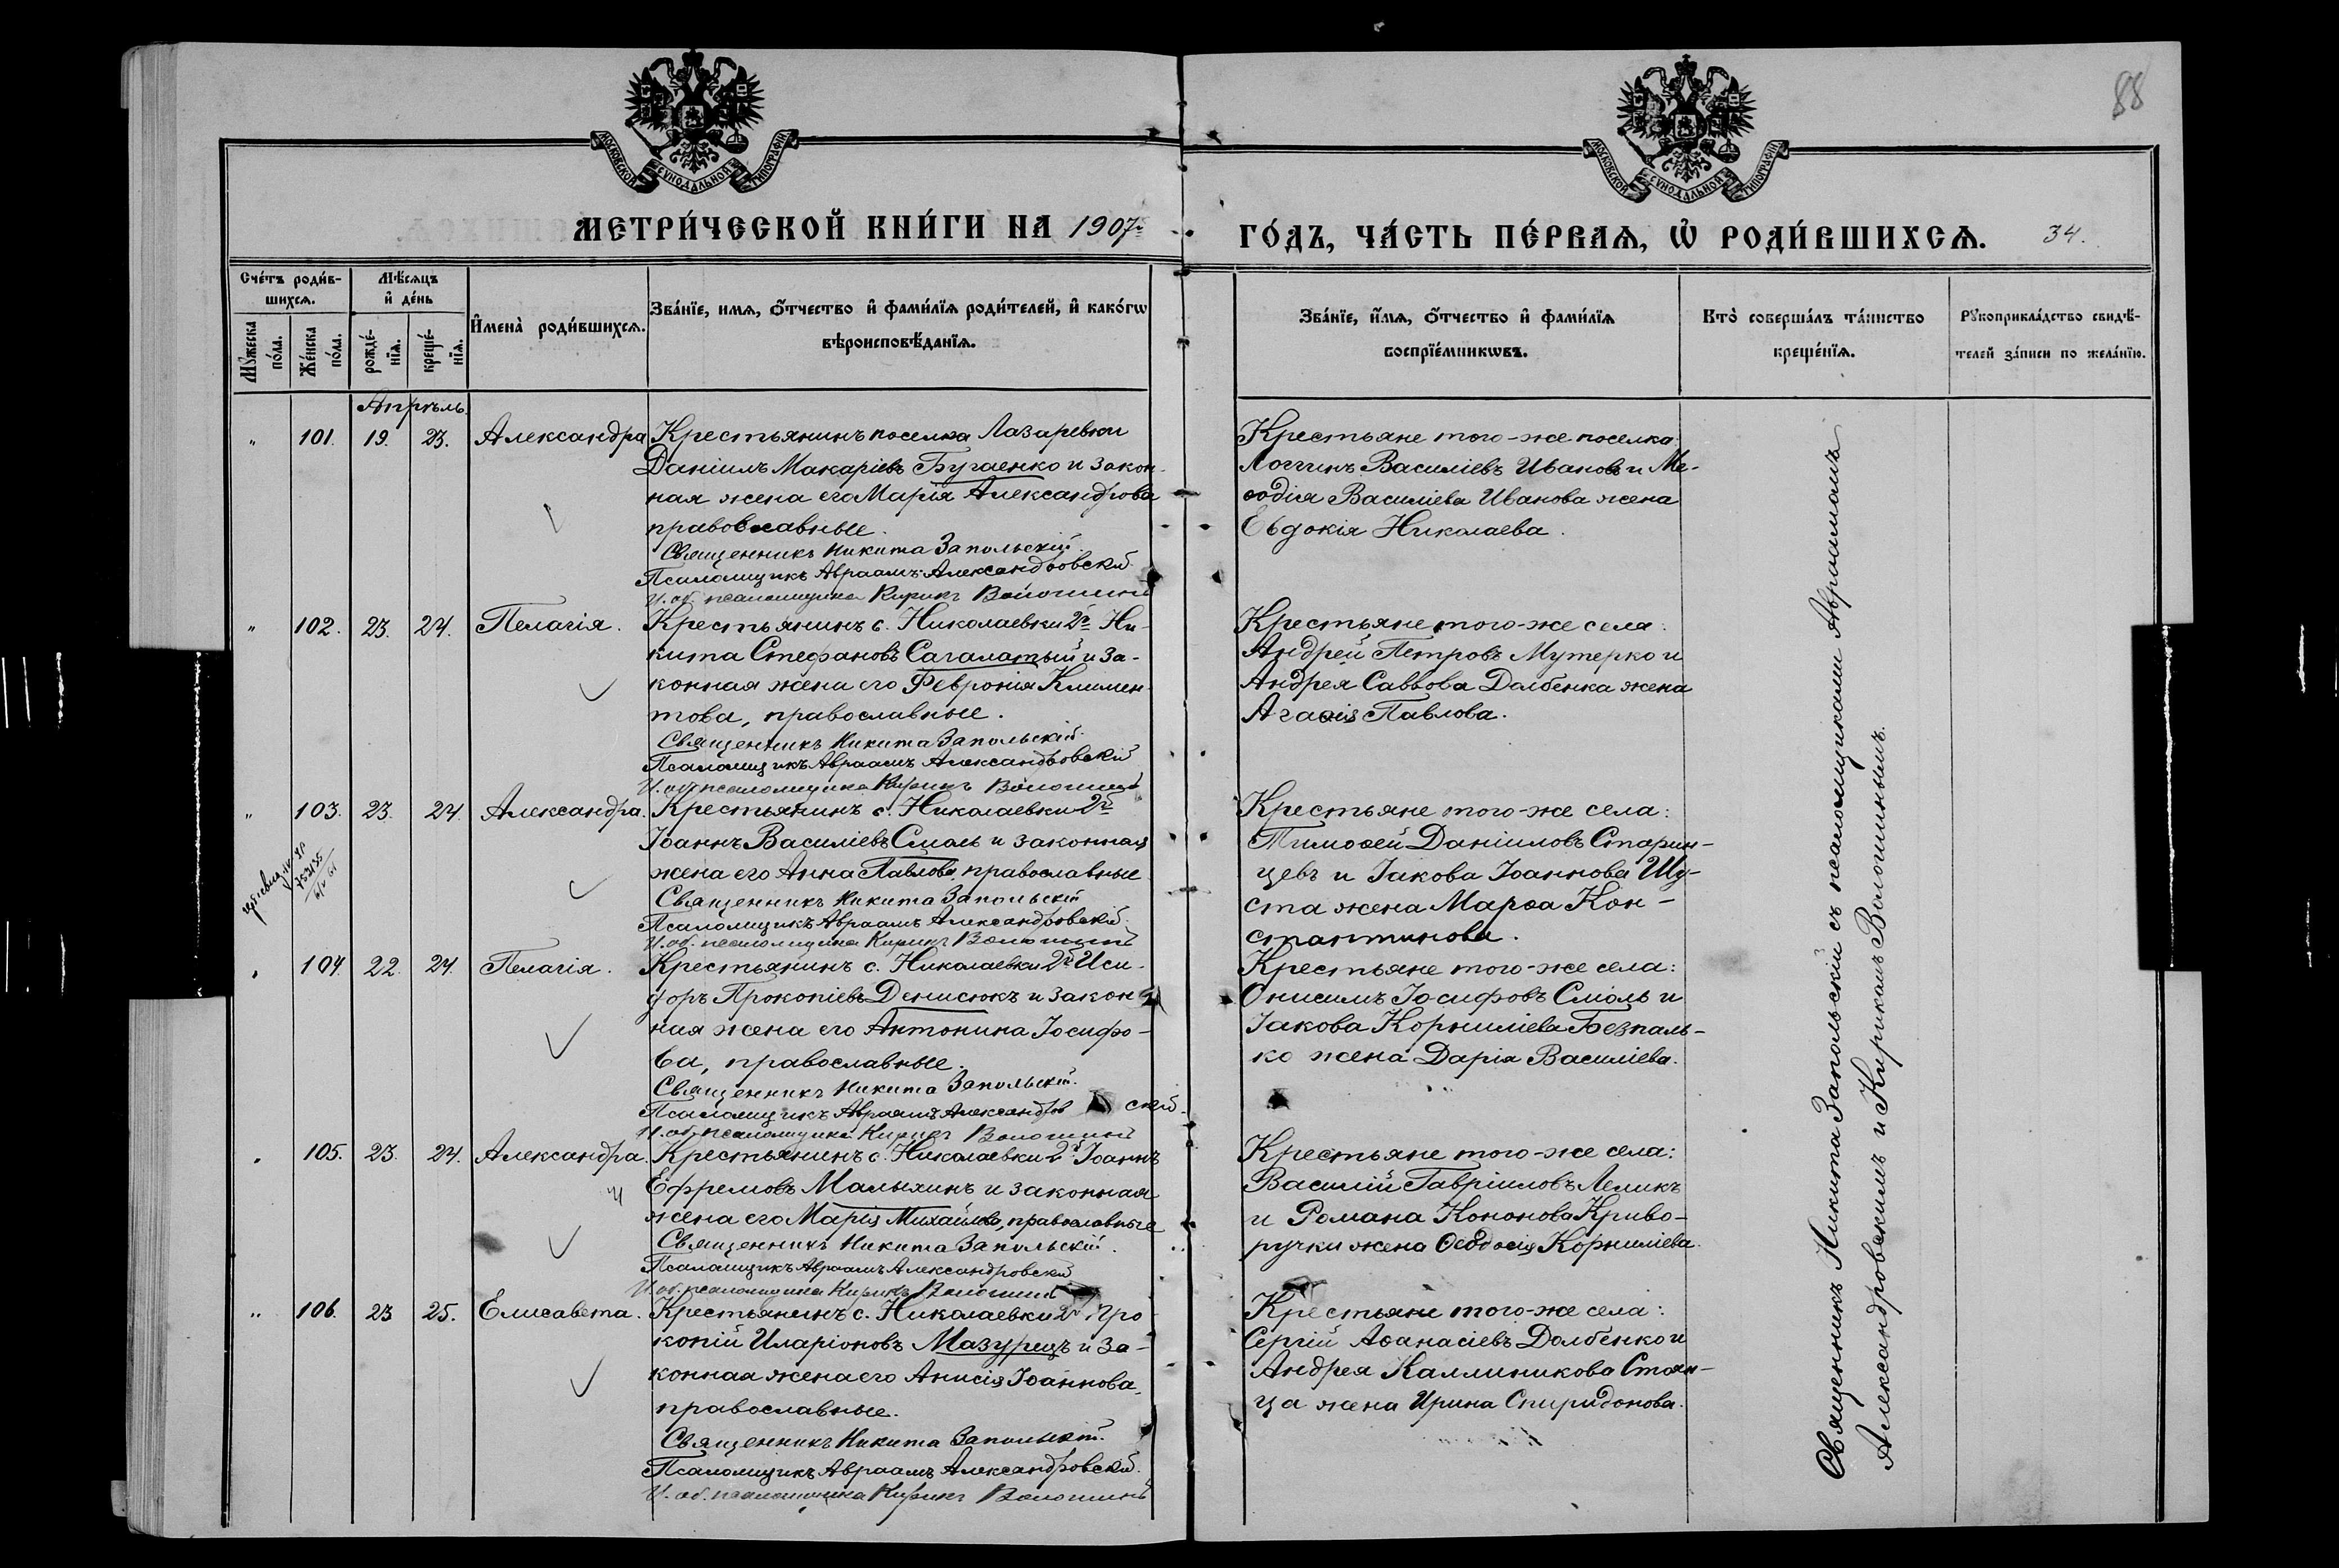 88
МОСКОВСКОЙ СѴНОДАЛЬНОЙ ТИПОГРАФІИ
МОСКОВСКОЙ СѴНОДАЛЬНОЙ ТИПОГРАФІИ
МЕТРИ́ЧЕСКОЙ КНИ́ГИ НА 1907й
ГО́ДЪ, ЧА́СТЬ ПЕ́РВАѦ, Ѡ҆ РОДИ́ВШИХСѦ. 34.
Сче́тъ роди́в-
шихсѧ.
Мѣ́сѧцъ
и҆ де́нь
Мꙋ́жеска по́ла.
Же́нска по́ла.
рожде́-
нїѧ.
креще́-
нїѧ.
И҆мена̀ роди́вшихсѧ.
Зва́нїе, имѧ, ѻ҆́тчество и҆ фами́лїѧ роди́телей, и҆ како́гѡ
вѣроисповѣ́данїѧ.
Зва́нїе, и҆́мѧ, ѻ҆́тчество и҆ фами́лїѧ
воспрїе́мникѡвъ.
Кто̀ соверша́лъ та́инство
креще́нїѧ.
Рꙋкоприкла́дство свидѣ́-
телей за́писи по жела́нїю.
Апрѣль
" 101. 19. 23. Александра
Крестьянинъ поселка Лазаревки
Даніилъ Макаріевъ Бугаенко и закон-
ная жена его Марія Александрова
православные.
Священникъ Никита Запольскій.
Псаломщикъ Авраамъ Александровскій
И. об. псаломщика Кирикъ Волошинъ
Крестьяне того-же поселка
Логгинъ Василіевъ Ивановъ и Ме-
ѳодія Василіева Иванова жена
Евдокія Николаева.
" 102. 23. 24. Пелагія.
Крестьянинъ с. Николаевки 2й Ни-
кита Стефановъ Сагалатый и за-
конная жена его Февронія Климен-
това, православные.
Священникъ Никита Запольскій.
Псаломщикъ Авраамъ Александровскій
И. об. псаломщика Кирикъ Волошинъ
Крестьяне того-же села:
Андрей Петровъ Мутерко и
Андрея Саввова Долбенка жена
Агаѳія Павлова.
" 103. 23. 24. Александра.
Крестьянинъ с. Николаевки 2й
Іоаннъ Василіевъ Смоль и законная
жена его Анна Павлова, православные
Священникъ Никита Запольскій
Псаломщикъ Авраамъ Александровскій.
И. об. псаломщика Кирикъ Волошинъ
Крестьяне того-же села:
Тимоѳей Даніиловъ Старин-
цевъ и Іакова Іоаннова Шу-
ста жена Марѳа Кон-
стантинова.
" 104. 22. 24. Пелагія.
Крестьянинъ с. Николаевки 2й Иси-
доръ Прокопіевъ Денисюкъ и закон
ная жена его Антонина Іосифо-
ва, православные.
Священникъ Никита Запольскій.
Псаломщикъ Авраамъ Александров скій.
И. об. псаломщика Кирикъ Волошинъ
Крестьяне того-же села:
Онисимъ Іосифовъ Смоль и
Іакова Корниліева Безпаль-
ко жена Дарія Василіева.
" 105. 23. 24. Александра.
Крестьянинъ с. Николаевки 2й Іоаннъ
Ефремовъ Малыхинъ и законная
жена его Марія Михайлова, православные
Священникъ Никита Запольскій.
Псаломщикъ Авраамъ Александровскій
И. об. псаломщика Кирикъ Волошинъ
Крестьяне того-же села:
Василій Гавріиловъ Лемикъ
и Романа Кононова Криво-
ручки жена Ѳеодосія Корниліева.
" 106. 23 25. Елисавета.
Крестьянинъ с. Николаевки 2й Про-
копій Иларіоновъ Мазурецъ и за-
конная жена его Анисія Іоаннова,
православные.
Священникъ Никита Запольскій.
Псаломщикъ Авраамъ Александровскій.
И. об. псаломщика Кирикъ Волошинъ
Крестьяне того-же села:
Сергій Аѳанасіевъ Долбенко и
Андрея Каллиникова Стоян-
ца жена Ирина Спиридонова.
Священникъ Никита Запольскій съ псаломщиками Авраамомъ
Александровскимъ и Кирикомъ Волошинымъ.